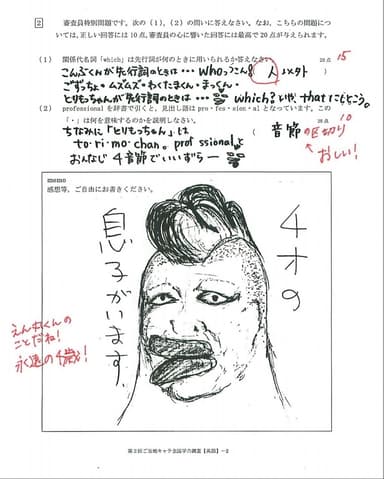 2 審査員特別問題です。次の(1),(2)の問いに答えなさい。なお,こちらの問題につ
いては,正しい回答には10点,審査員の心に響いた回答には最高で20点が与えられます。
(1) 関係代名詞「which」は先行詞が何のときに用いられるか答えなさい。 20点 15
こんぶくんが先行詞のときは…whoっつこん 人 以外
ごずっちょ・ムズムズ・わくたまくん・まっくん・
とりもっちゃんが先行詞のときは… which?いや、thatにしとこう。
(2) professionalを辞書で引くと,見出し語はpro・fes・sion・alとなっています。この
「・」は何を意味するのかを説明しなさい。 20点 10
ちなみに「とりもっちゃん」は
to・ri・mo・chan。 professional と
おんなじ4音節でいいずらー
音節の区切り
おしい!
memo
感想等,ご自由にお書きください。
4才の
息子がいます。
えんまくんの
ことだね!
永遠の4歳!
第2回ご当地キャラ全国学力調査【英語】-2